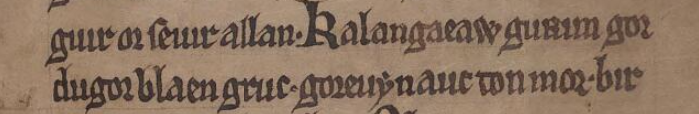 guir or seuir allan. Kalangaeaw gurim gor
dugor blaen gruc. goreuynauc ton mor. bir